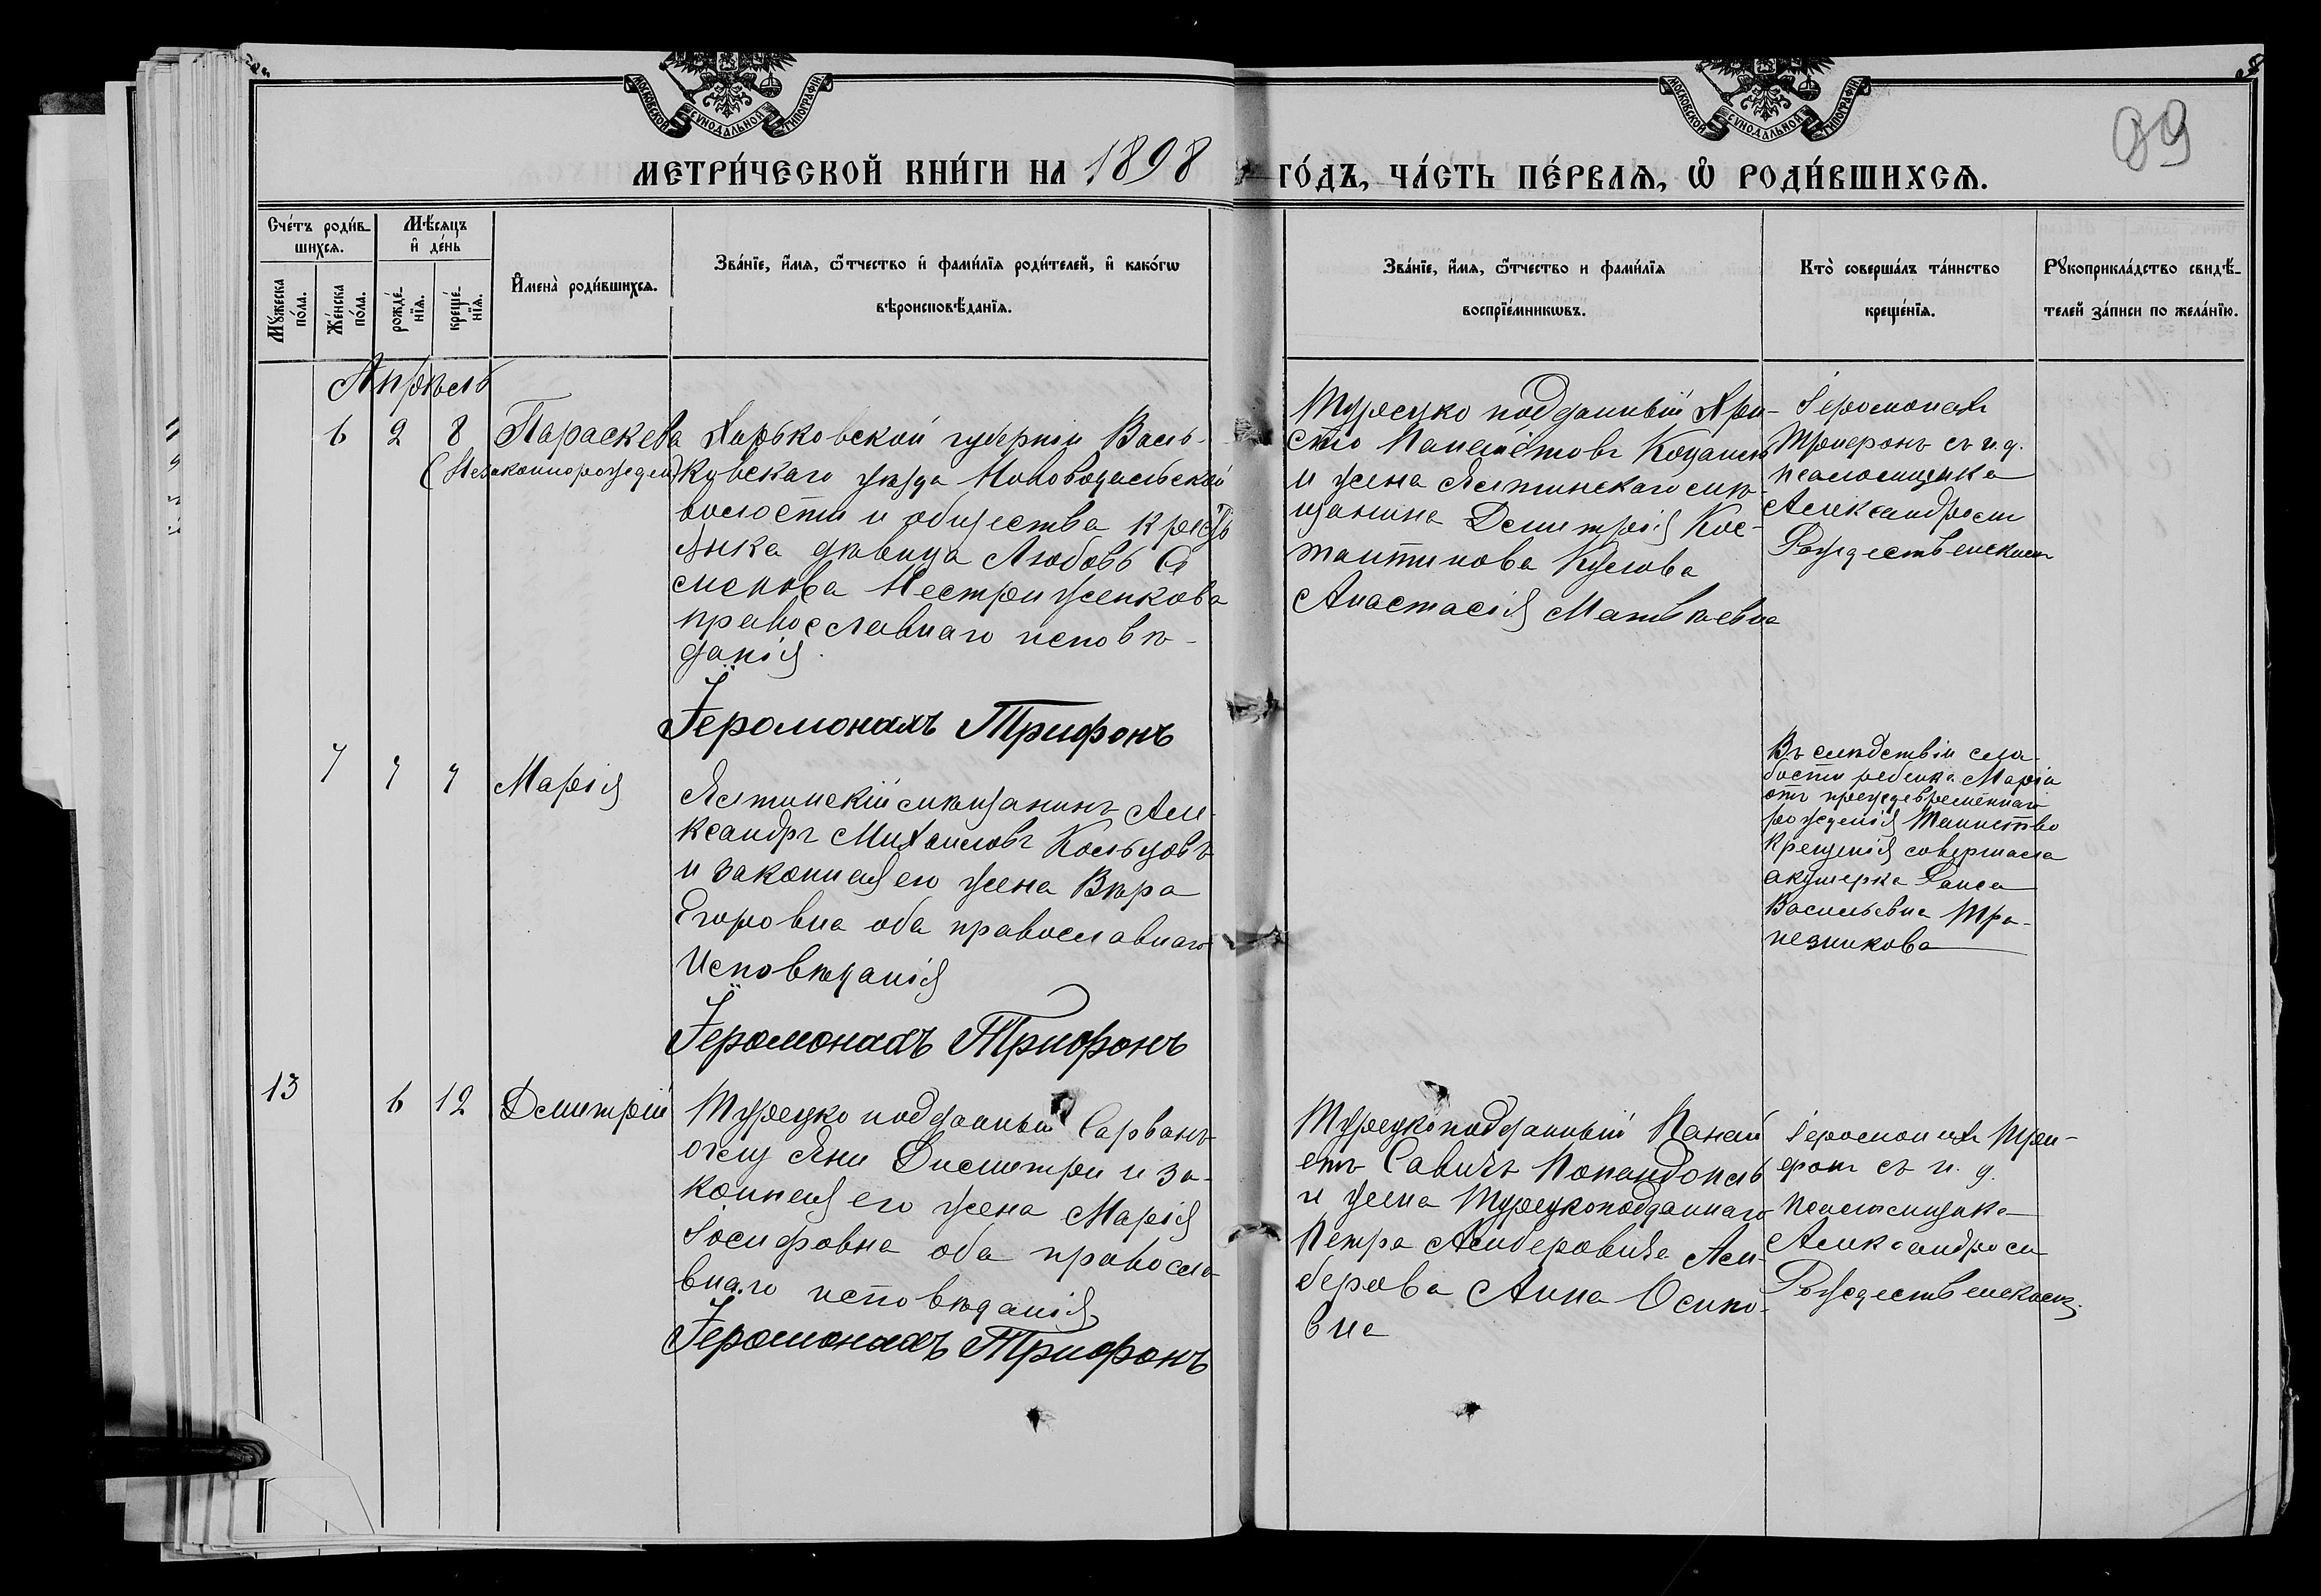 МОСКОВСКОЙ СѴНОДАЛЬНОЙ ТИПОГРАФІИ
МОСКОВСКОЙ СѴНОДАЛЬНОЙ ТИПОГРАФІИ
89
МЕТРИ́ЧЕСКОЙ КНИ́ГИ НА 1898 ГО́ДЪ, ЧА́СТЬ ПЕ́РВАѦ, Ѡ РОДИ́ВШИХСѦ.
Сче́тъ роди́в-
шихсѧ.
Мѣ́сѧцъ
и҆ де́нь
Мꙋ́жеска
по́ла.
Же́нска
по́ла.
рожде́-
нїѧ.
креще́-
нїѧ.
И҆мена̀ роди́вшихсѧ.
Зва́нїе, и҆́мѧ, ѻ҆́тчество и҆ фами́лїѧ роди́телей, и҆ како́гѡ
вѣроисповѣ́данїѧ.
Зва́нїе, и҆́мѧ, ѻ҆́тчество и фами́лїѧ
воспрїе́мникѡвъ.
Кто̀ соверша́лъ та́инство
креще́нїѧ.
Рꙋкоприкла́дство свидѣ́-
телей за́писи по жела́нїю.
Апрѣль
6 2 8 Параскева
(Незаконнорожден)
Харьковской губерніи Вась-
ковскаго уѣзда Нововоды
волости и общества крестъ
янка дѣвица Любовь Се
менова Нестриженкова
православнаго исповѣ-
данія.
Іеромонахъ Трифонъ
Турецко подданный Хри-
сто Панаётовъ
и жена Ялтинскаго мѣ-
щанина Дмитрія Кос-
тантинова
Анастасія Матвѣевна
Іеромонахъ
Трифонъ съ и.д.
псаломщика
Александромъ
Рождественскимъ
7 7 7 Марія
Ялтинскій мѣщанинъ Але-
ксандръ Михаиловъ Кольцовъ
и законная его жена Вѣра
Егоровна оба православнаго
исповѣданія
Іеромонахъ Трифонъ
Въ слѣдствіи сла-
бости ребенка Маріи
отъ преждевременнаго
рожденія Таинство
Крещенія совершала
акушерка Раиса
Васильевна Тра-
пезникова
13 6 12 Дмитрій
Турецко подданный Сарванъ-
оглу Яни Димитри и за-
конная его жена Марія
Іосифовна оба правосла-
внаго исповѣданія
Іеромонахъ Трифонъ
Турецкоподданный Панай
етъ Савичъ Попандопуль
и жена Турецкоподданнаго
Петра Алиберовича Али-
берова Анна Осипо-
вна
Іеромонахъ Три-
фонъ съ и. д.
псаломщика
Александромъ
Рождественскимъ.